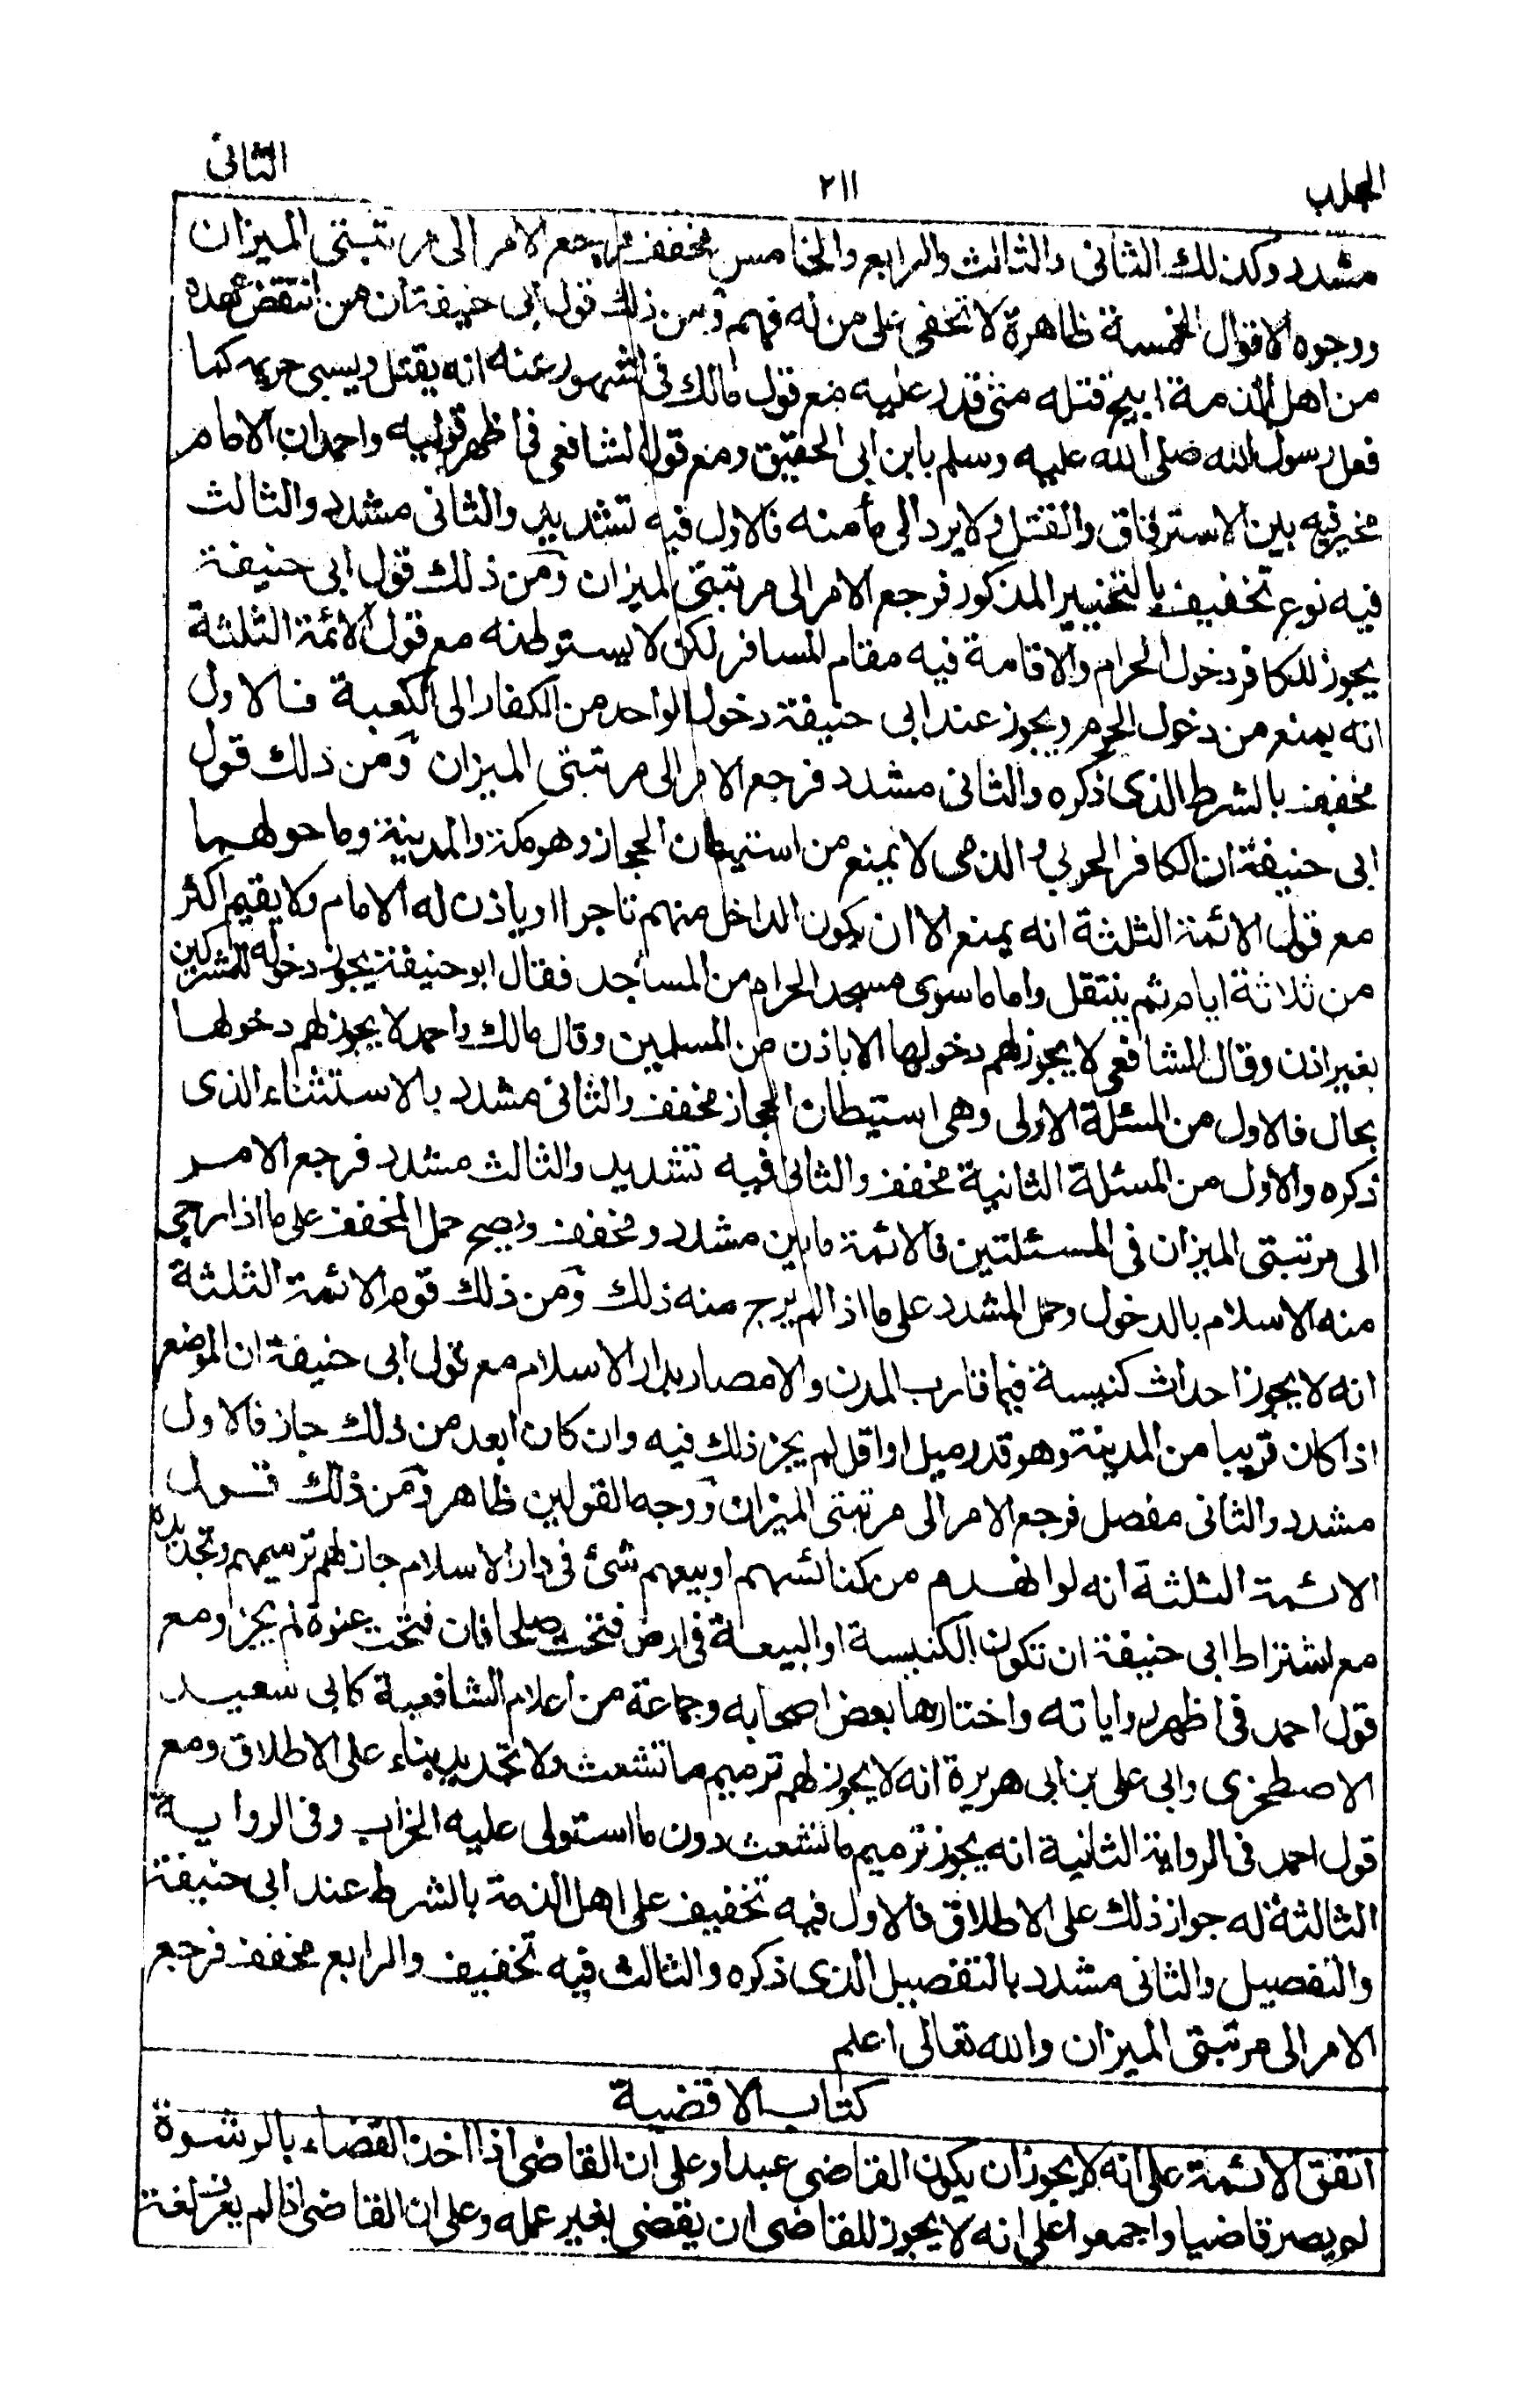 المجلد ٢١١ الثانى
مشدد وكذلك الثانى والثالث والرابع والخامس مخفف فرجع الامر الى مرتبتى الميزان
ووجوه الاقوال الخمسة ظاهرة لا تخفى على من له فهم ومن ذلك قول ابى حنيفة ان من انتقض عهده
من اهل الذمة ابيح قتله متى قدر عليه مع قول مالك فى المشهور عنه انه يقتل ويسبى حريمه كما
فعل رسول الله صلى الله عليه وسلم بابن ابى الحقيق ومع قول الشافعى فى اظهر قوليه واحمد ان الامام
مخير فيه بين الاسترقاق والقتل ولا يرد الى مأمنه فالاول فيه تشديد والثانى مشدد والثالث
فيه نوع تخفيف بالتخيير المذكور فرجع الامر الى مرتبتى الميزان ومن ذلك قول ابى حنيفة
يجوز للكافر دخول الحرام والاقامة فيه مقام المسافر لكن لا يستوطنه مع قول الائمة الثلثة
انه يمنع من دخول الحرم ويجوز عند ابى حنيفة دخول الواحد من الكفار الى الكعبة فالاول
مخفف بالشرط الذى ذكره والثانى مشدد فرجع الامر الى مرتبتى الميزان ومن ذلك قول
ابى حنيفة ان الكافر الحربى والذمى لا يمنع من استيطان الحجاز وهو مكة والمدينة وما حولهما
مع قول الائمة الثلثة انه يمنع الا ان يكون الداخل منهم تاجرا او ياذن له الامام ولا يقيم اكثر
من ثلاثة ايام ثم ينتقل واما ما سوى مسجد الحرام من المساجد فقال ابو حنيفة يجوز دخوله للمشركين
بغير اذن وقال الشافعى لا يجوز لهم دخولها الا باذن من المسلمين وقال مالك واحمد لا يجوز لهم دخولها
بحال فالاول من المسئلة الاولى وهى استيطان الحجاز مخفف والثانى مشدد بالاستثناء الذى
ذكره والاول من المسئلة الثانية مخفف والثانى فيه تشديد والثالث مشدد فرجع الامر
الى مرتبتى الميزان فى المسئلتين فالائمة ما بين مشدد ومخفف ويصح حمل المخفف على ما اذا رجى
منه الاسلام بالدخول وحمل المشدد على ما اذا لم يرج منه ذلك ومن ذلك قول الائمة الثلثة
انه لا يجوز احداث كنيسة فيما قارب المدن والامصار بدار الاسلام مع قول ابى حنيفة ان الموضع
اذا كان قريبا من المدينة وهو قدر ميل او اقل لم يجز ذلك فيه وان كان ابعد من ذلك جاز فالاول
مشدد والثانى مفصل فرجع الامر الى مرتبتى الميزان ووجه القولين ظاهر ومن ذلك قول
الائمة الثلثة انه لو انهدم من كنائسهم او بيعهم شئ فى دار الاسلام جاز لهم ترميمهم وتجديده
مع اشتراط ابى حنيفة ان تكون الكنيسة او البيعة فى ارض فتحت صلحا فان فتحت عنوة لم يجز ومع
قول احمد فى اظهر رواياته واختارها بعض اصحابه وجماعة من اعلام الشافعية كابى سعيد
الاصطخرى وابى على بن ابى هريرة انه لا يجوز لهم ترميم ما تشعث ولا تجديد بناء على الاطلاق ومع
قول احمد فى الرواية الثانية انه يجوز ترميم ما تشعث دون ما استولى عليه الخراب وفى الرواية
الثالثة له جواز ذلك على الاطلاق فالاول فيه تخفيف على اهل الذمة بالشرط عند ابى حنيفة
والتفصيل والثانى مشدد بالتفصيل الذى ذكره والثالث فيه تخفيف والرابع مخفف فرجع
الامر الى مرتبتى الميزان والله تعالى اعلم
كتاب الاقضية
اتفق الائمة على انه لا يجوز ان يكون القاضى عبدا وعلى ان القاضى اذا اخذ القضاء بالرشوة
لم يصر قاضيا واجمعوا على انه لا يجوز للقاضى ان يقضى بغير عمله وعلى ان القاضى اذا لم يعرف لغة